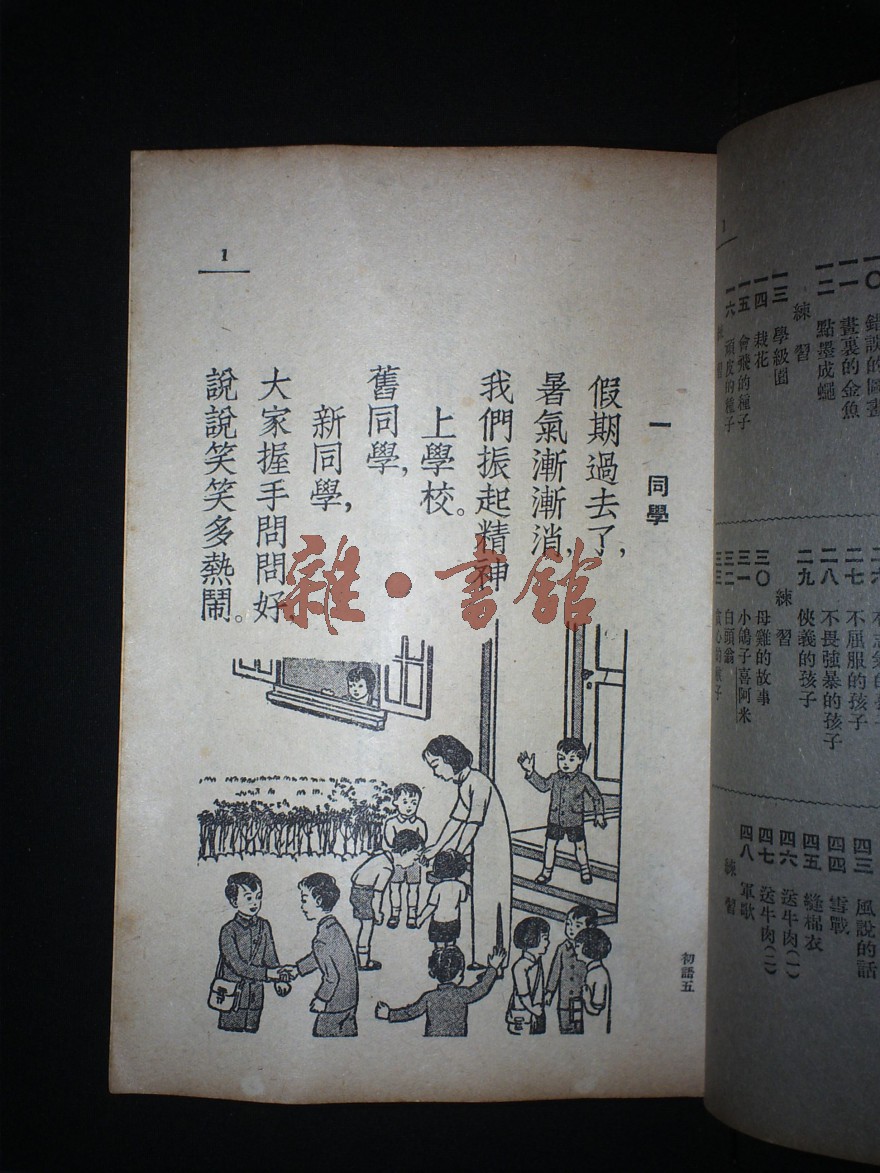 1
一　同學
假期過去了，
暑氣漸漸消，
我們振起精神
上學校。
舊同學，
新同學，
大家握手問問好，
說說笑笑多熱鬧。
初語五
雜·書館
1
一〇　錯誤的圖書
一一　畫裏的金魚
一二　點墨成蠅
練習
一三　學級園
一四　栽花
一五　會飛的種子
一六　頑皮的種子
二七　不屈服的孩子
二八　不畏強暴的孩子
二九　俠義的孩子
練習
三〇　母雞的故事
三一　小鴿子喜阿米
三二　白頭翁
三三
四三　風說的話
四四　雪戰
四五　縫棉衣
四六　送牛肉(一)
四七　送牛肉(二)
四八　軍歌
練習